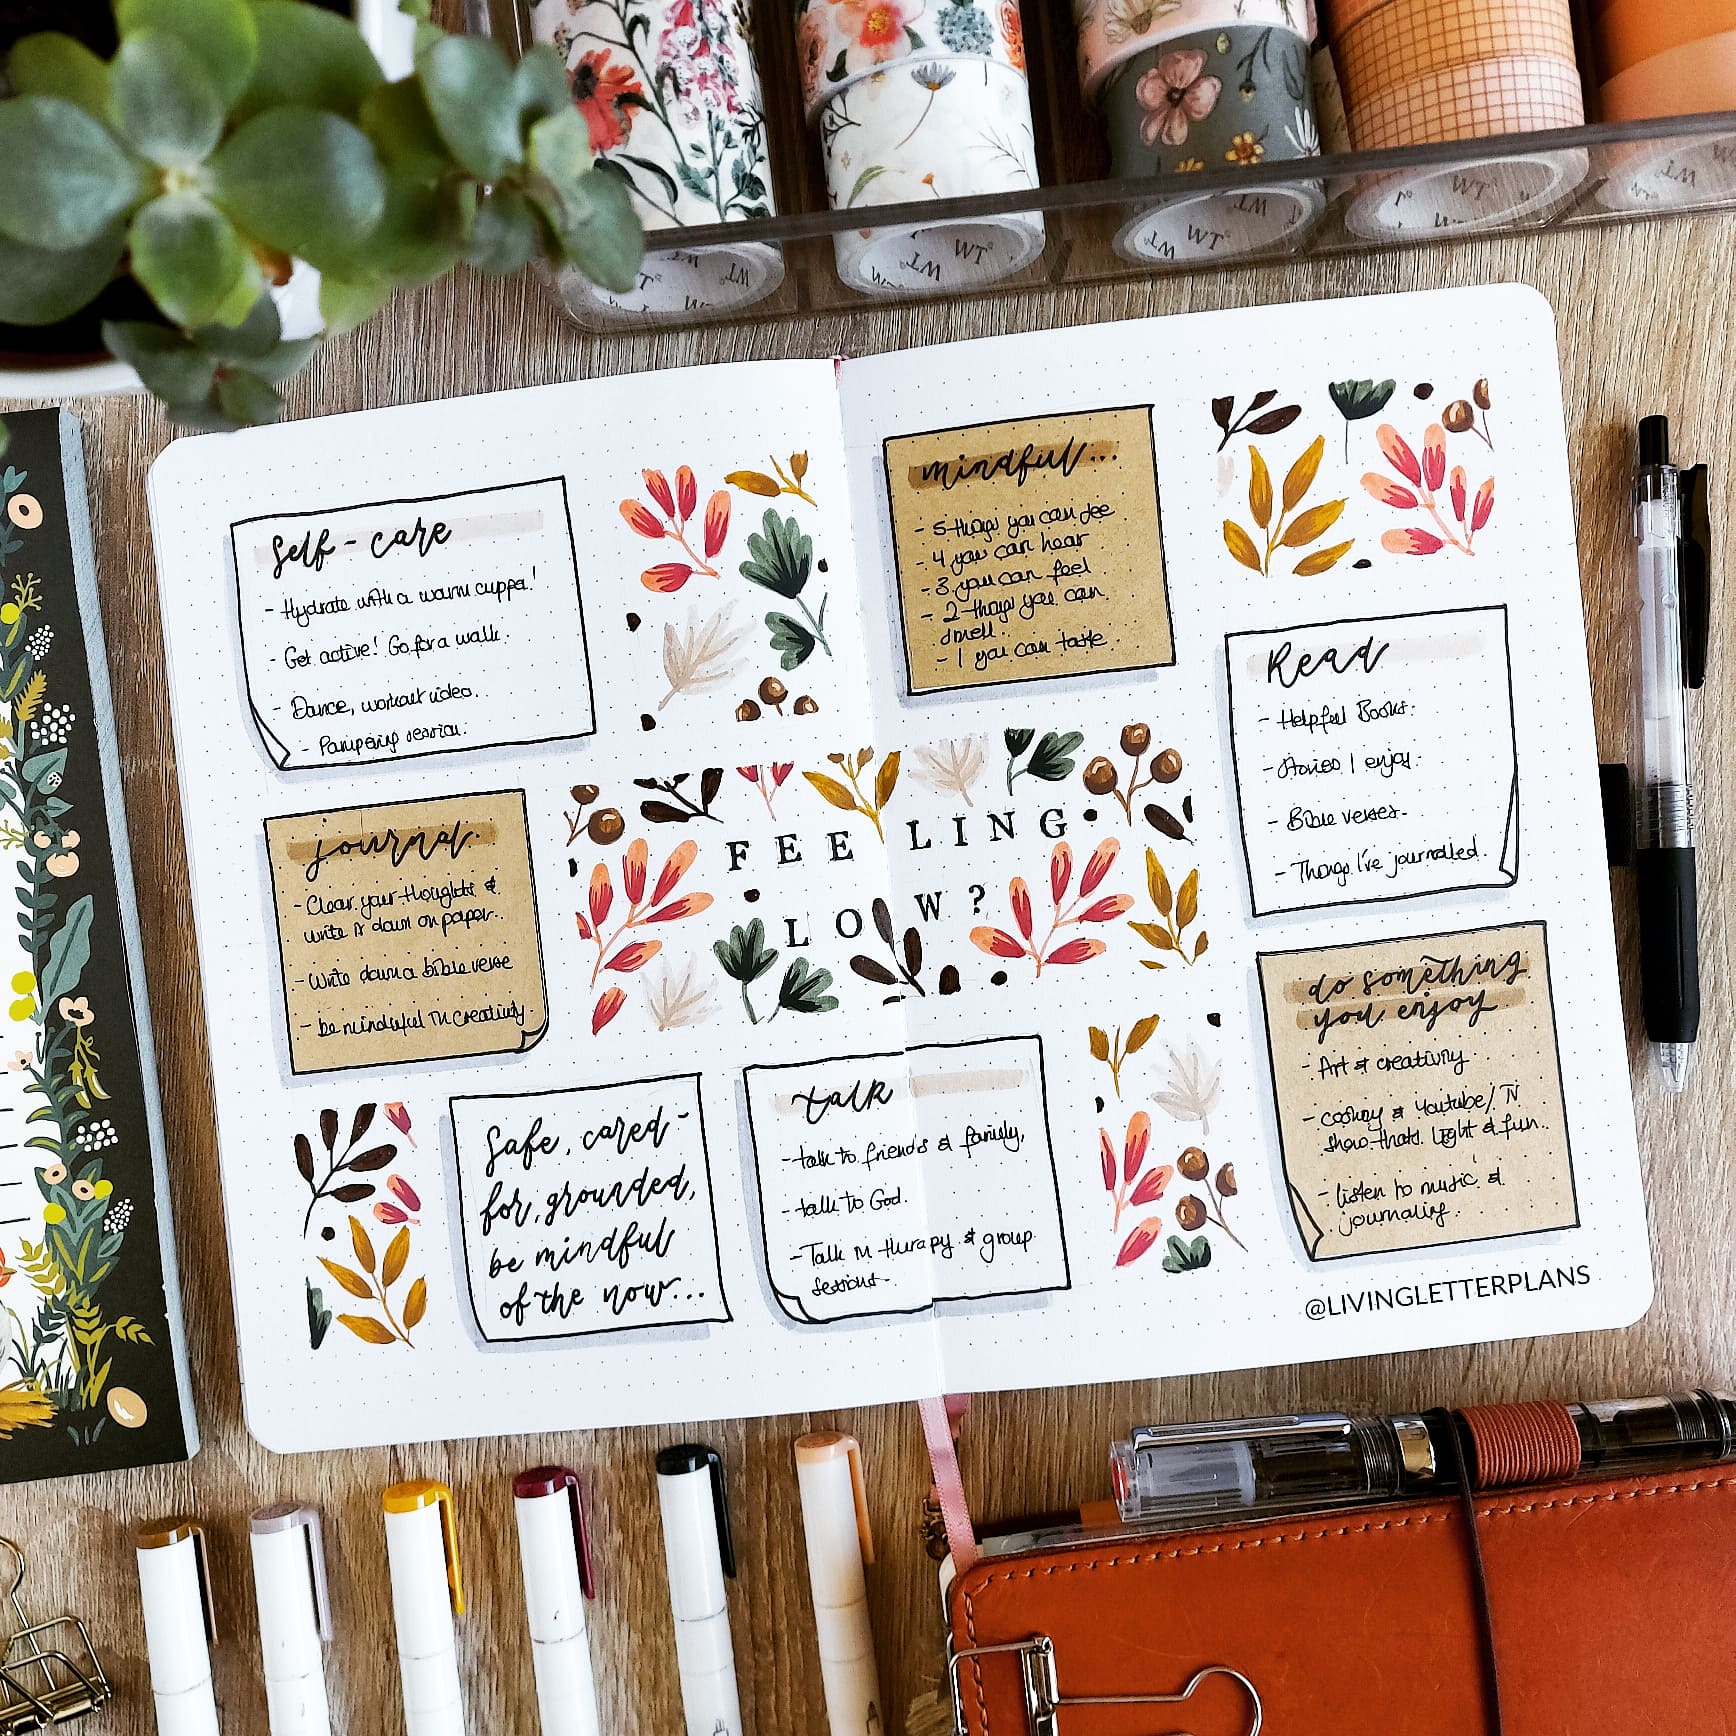 Self-care
- Hydrate with a warm cuppa!
- Get active! Go for a walk.
- Dance, workout video.
- Pampering session.
journal
- Clear your thoughts &
write it down on paper.
- Write down a bible verse
- be mindful in creativity.
Safe, cared-
for, grounded,
be mindful
of the now...
FEELING
LOW?
talk
- talk to friends & family,
- talk to God.
- Talk in therapy & group
sessions.
mindful...
- 5 things you can see
- 4 you can hear
- 3 you can feel
- 2 things you can
smell.
- 1 you can taste.
Read
- Helpful Books.
- Stories I enjoy.
- Bible verses.
- Things I've journalled.
do something
you enjoy
- Art & creativity.
- cooking & Youtube/TV
show thats light & fun..
- listen to music &
journaling.
@LIVINGLETTERPLANS
WT
WT
WT
WT
WT
WT
WT
WT